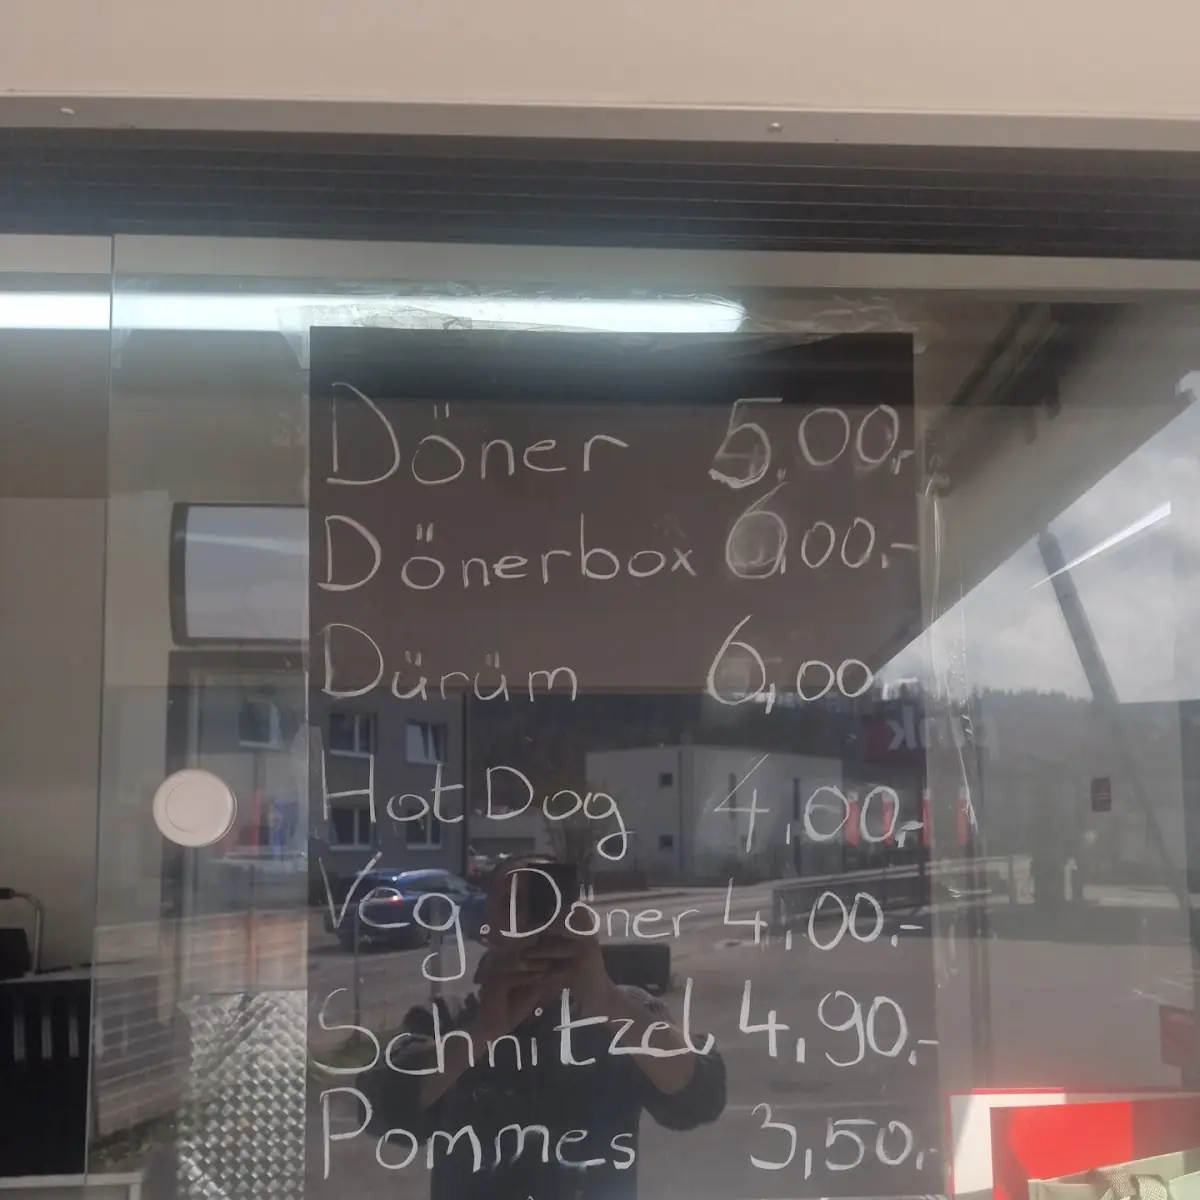 Döner 5.00,-
Dönerbox 6,00.-
Dürüm 6,00.-
Hot Dog 4,00,-
Veg. Döner 4,00.-
Schnitzel 4,90.-
Pommes 3,50.-